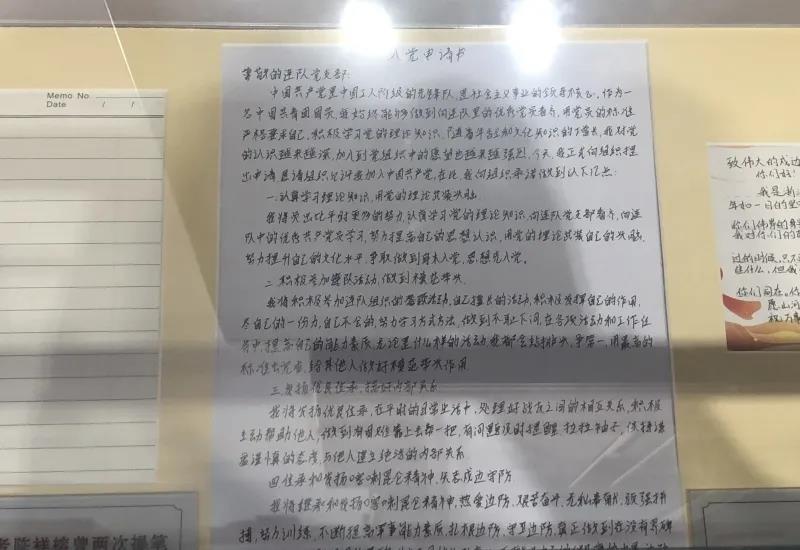 Memo No
Date / /
入党申请书
尊敬的连队党支部:
中国共产党是中国工人阶级的先锋队,是社会主义事业的领导核心,作为一
名中国共青团团员,我始终能够做到向连队里的优秀党员看齐,用党员的标准
严格要求自己,积极学习党的理论知识,随着年龄和文化知识的增长,我对党
的认识越来越深,加入到党组织中的愿望也越来越强烈,今天,我正式向组织提
出申请,恳请组织允许我加入中国共产党,在此,我向组织承诺做到以下几点:
一.认真学习理论知识,用党的理论武装头脑
我将突出比平时更多的努力,认真学习党的理论知识,向连队党支部看齐,向连
队中的优秀共产党员学习,努力提高自己的思想认识,用党的理论武装自己的头脑,
努力提升自己的文化水平,争取做到身未入党,思想先入党。
二.积极参加连队活动,做到模范带头
我将积极参加连队组织的各级活动,自己擅长的活动,积极发挥自己的作用,
尽自己的一份力,自己不会的,努力学习方式方法,做到不耻下问,在各项活动和工作任
务中,提高自己的能力素质,无论是什么样的活动我都会站排头,争第一,用最高的
标准去完成,给其他人做好模范带头作用
三.发扬优良传承,搞好内部关系
我将发扬优良传承,在平时的日常生活中,处理好战友之间的相互关系,积极
主动帮助他人,做到有困难靠上去帮一把,有问题及时提醒,拉拉袖子,保持谦
虚谨慎的态度,与他人建立纯洁的内部关系
四.传承和发扬喀喇昆仑精神,矢志戍边守防
我将继承和发扬喀喇昆仑精神,热爱边防,艰苦奋斗,无私奉献,顽强拼
搏,努力训练,不断提高军事能力素质,扎根边防,守卫边防,真正做到在没有硝烟
致伟大的戍边
你们好!
我是新
年和一日的坚
你们伟岸的身
我对你们的
过的时候,只不
是什么,但我
你们同在。你
昆山河
祝万事
陈祥榕曾两次提笔